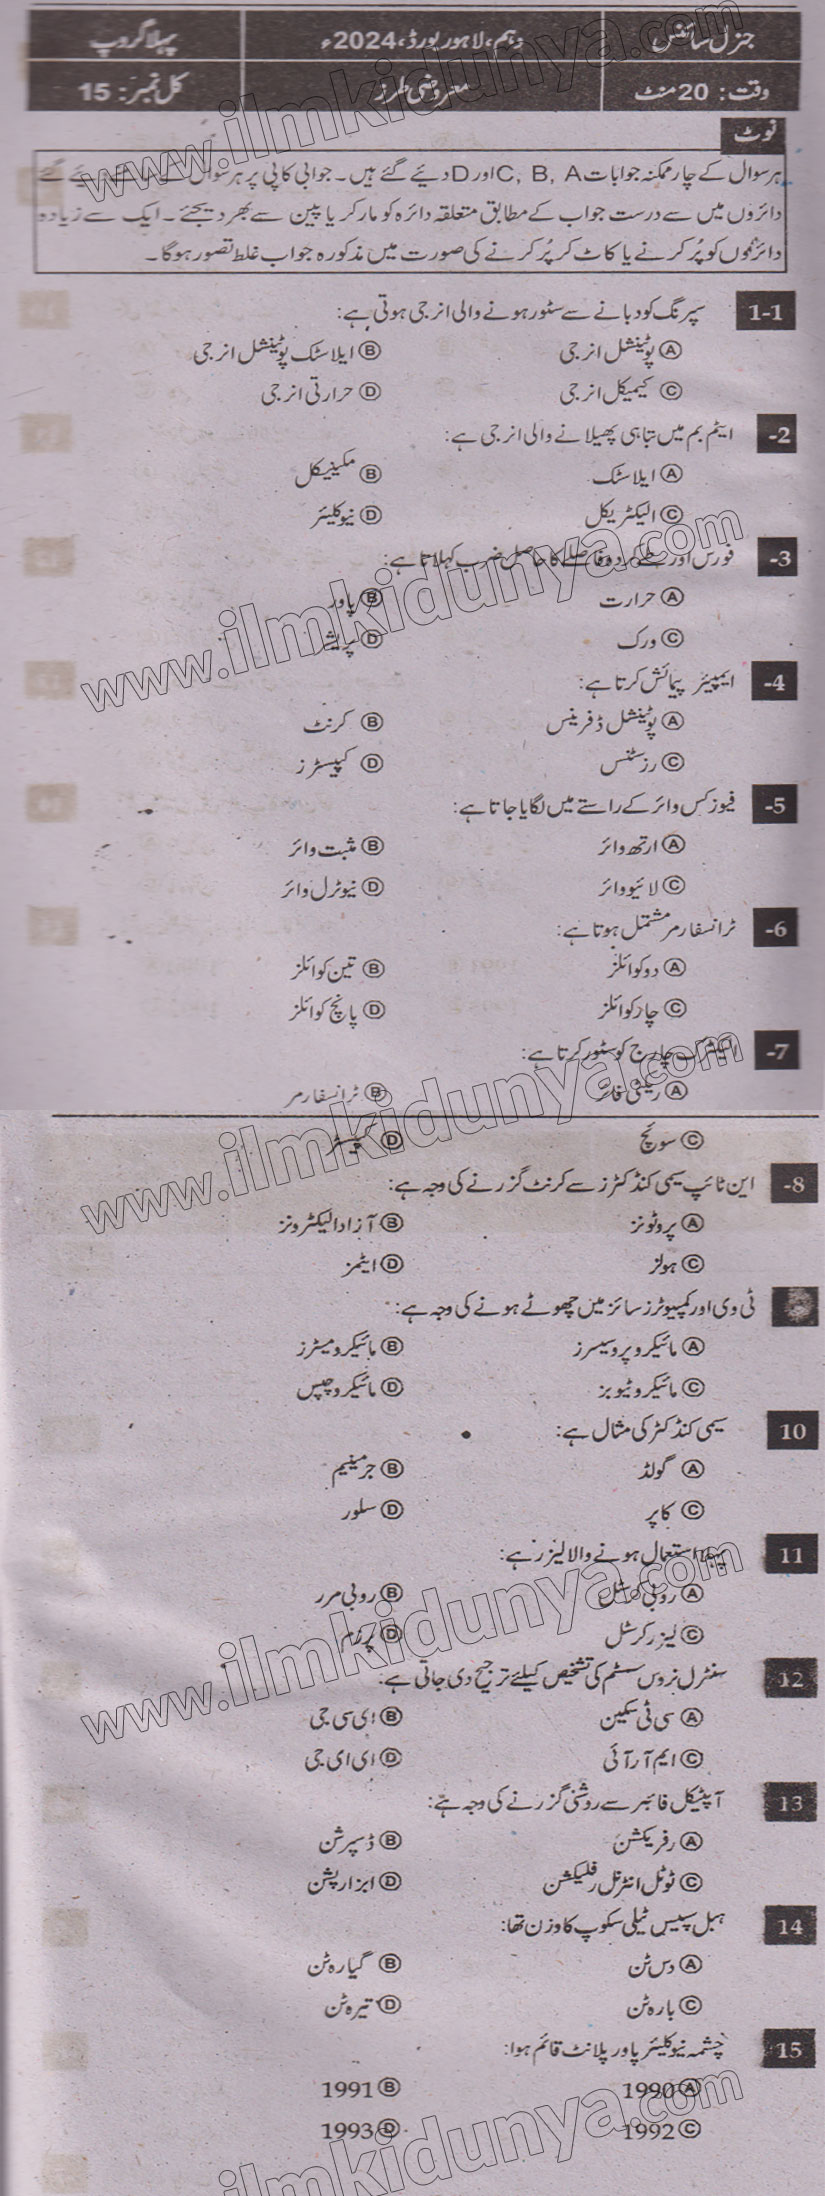 جنرل سائنس دہم، لاہور بورڈ، 2024ء پہلا گروپ
وقت: 20 منٹ معروضی طرز کل نمبر: 15
نوٹ
ہر سوال کے چار ممکنہ جوابات C, B, A اور D دیئے گئے ہیں۔ جوابی کاپی پر ہر سوال کے سامنے دیئے گئے
دائروں میں سے درست جواب کے مطابق متعلقہ دائرہ کو مارکر یا پین سے بھر دیجئے۔ ایک سے زیادہ
دائروں کو پُر کرنے یا کاٹ کر پُر کرنے کی صورت میں مذکورہ جواب غلط تصور ہوگا۔
1-1 سپرنگ کو دبانے سے سٹور ہونے والی انرجی ہوتی ہے:
Ⓐ پوٹینشل انرجی Ⓑ ایلاسٹک پوٹینشل انرجی
Ⓒ کیمیکل انرجی Ⓓ حرارتی انرجی
2- ایٹم بم میں تباہی پھیلانے والی انرجی ہے:
Ⓐ ایلاسٹک Ⓑ مکینیکل
Ⓒ الیکٹریکل Ⓓ نیوکلیئر
3- فورس اور طے کردہ فاصلے کا حاصل ضرب کہلاتا ہے:
Ⓐ حرارت Ⓑ پاور
Ⓒ ورک Ⓓ پریشر
4- ایمپیئر پیمائش کرتا ہے:
Ⓐ پوٹینشل ڈفرینس Ⓑ کرنٹ
Ⓒ رزسٹنس Ⓓ کپیسٹرز
5- فیوز کس وائر کے راستے میں لگایا جاتا ہے:
Ⓐ ارتھ وائر Ⓑ مثبت وائر
Ⓒ لائیو وائر Ⓓ نیوٹرل وائر
6- ٹرانسفارمر مشتمل ہوتا ہے:
Ⓐ دو کوائلز Ⓑ تین کوائلز
Ⓒ چار کوائلز Ⓓ پانچ کوائلز
7- الیکٹرک چارج کو سٹور کرتا ہے:
Ⓐ ریکٹی فائر Ⓑ ٹرانسفارمر
Ⓒ سوئچ Ⓓ کپیسٹر
8- این ٹائپ سیمی کنڈکٹرز سے کرنٹ گزرنے کی وجہ ہے:
Ⓐ پروٹونز Ⓑ آزاد الیکٹرونز
Ⓒ ہولز Ⓓ ایٹمز
ٹی وی اور کمپیوٹرز سائز میں چھوٹے ہونے کی وجہ ہے:
Ⓐ مائیکرو پروسیسرز Ⓑ مائیکرو میٹرز
Ⓒ مائیکرو ٹیوبز Ⓓ مائیکرو چپس
10 سیمی کنڈکٹر کی مثال ہے:
Ⓐ گولڈ Ⓑ جرمینیم
Ⓒ کاپر Ⓓ سلور
11 پہلا استعمال ہونے والا لیزر ہے:
Ⓐ روبی کرسٹل Ⓑ روبی مرر
Ⓒ لیزر کرسٹل Ⓓ پرزم
12 سنٹرل نروس سسٹم کی تشخیص کیلئے ترجیح دی جاتی ہے:
Ⓐ سی ٹی سکین Ⓑ ای سی جی
Ⓒ ایم آر آئی Ⓓ ای ای جی
13 آپٹیکل فائبر سے روشنی گزرنے کی وجہ ہے:
Ⓐ رفریکشن Ⓑ ڈسپرشن
Ⓒ ٹوٹل انٹرنل رفلیکشن Ⓓ ابزارپشن
14 ہبل سپیس ٹیلی سکوپ کا وزن تھا:
Ⓐ دس ٹن Ⓑ گیارہ ٹن
Ⓒ بارہ ٹن Ⓓ تیرہ ٹن
15 چشمہ نیوکلیئر پاور پلانٹ قائم ہوا:
Ⓐ 1990 Ⓑ 1991
Ⓒ 1992 Ⓓ 1993
www.ilmkidunya.com
www.ilmkidunya.com
www.ilmkidunya.com
www.ilmkidunya.com
www.ilmkidunya.com